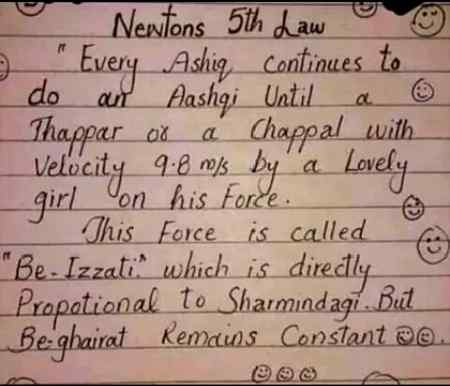 Newtons 5th Law
" Every Ashiq continues to
do an Aashqi Until a
Thappar or a Chappal with
Velocity 9.8 m/s by a Lovely
girl on his Force.
This Force is called
"Be-Izzati" which is directly
Propotional to Sharmindagi. But
Be-ghairat Remains Constant